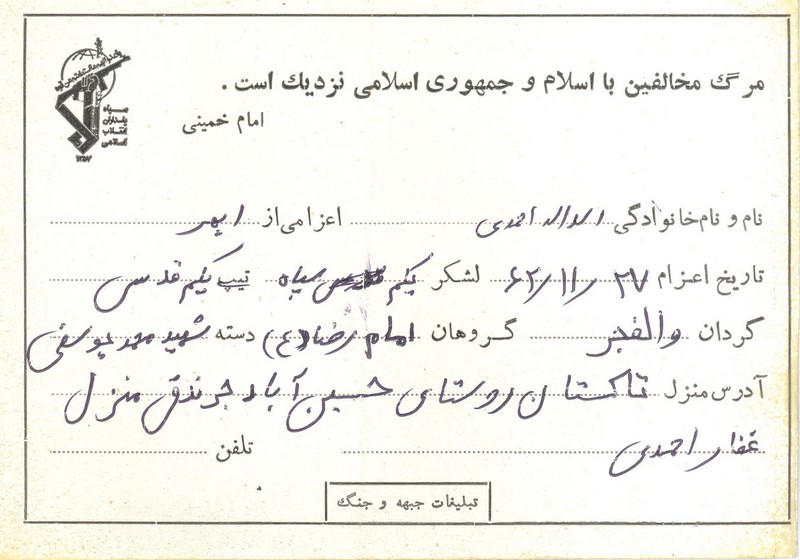 مرگ مخالفین با اسلام و جمهوری اسلامی نزدیك است .
امام خمینی
سپاه
پاسداران
انقلاب
اسلامی
۱۳۵۷
نام و نام خانوادگی اسداله احمدی اعزامی از ابهر
تاریخ اعزام ۶۲/۱۱/۲۷ لشکر یکم سپاه تیپ یکم قدس
گردان والفجر گروهان امام رضا (ع) دسته شهید محمد یوسفی
آدرس منزل تاکستان روستای حسین آباد جرندق منزل
غفار احمدی تلفن
تبلیغات جبهه و جنگ